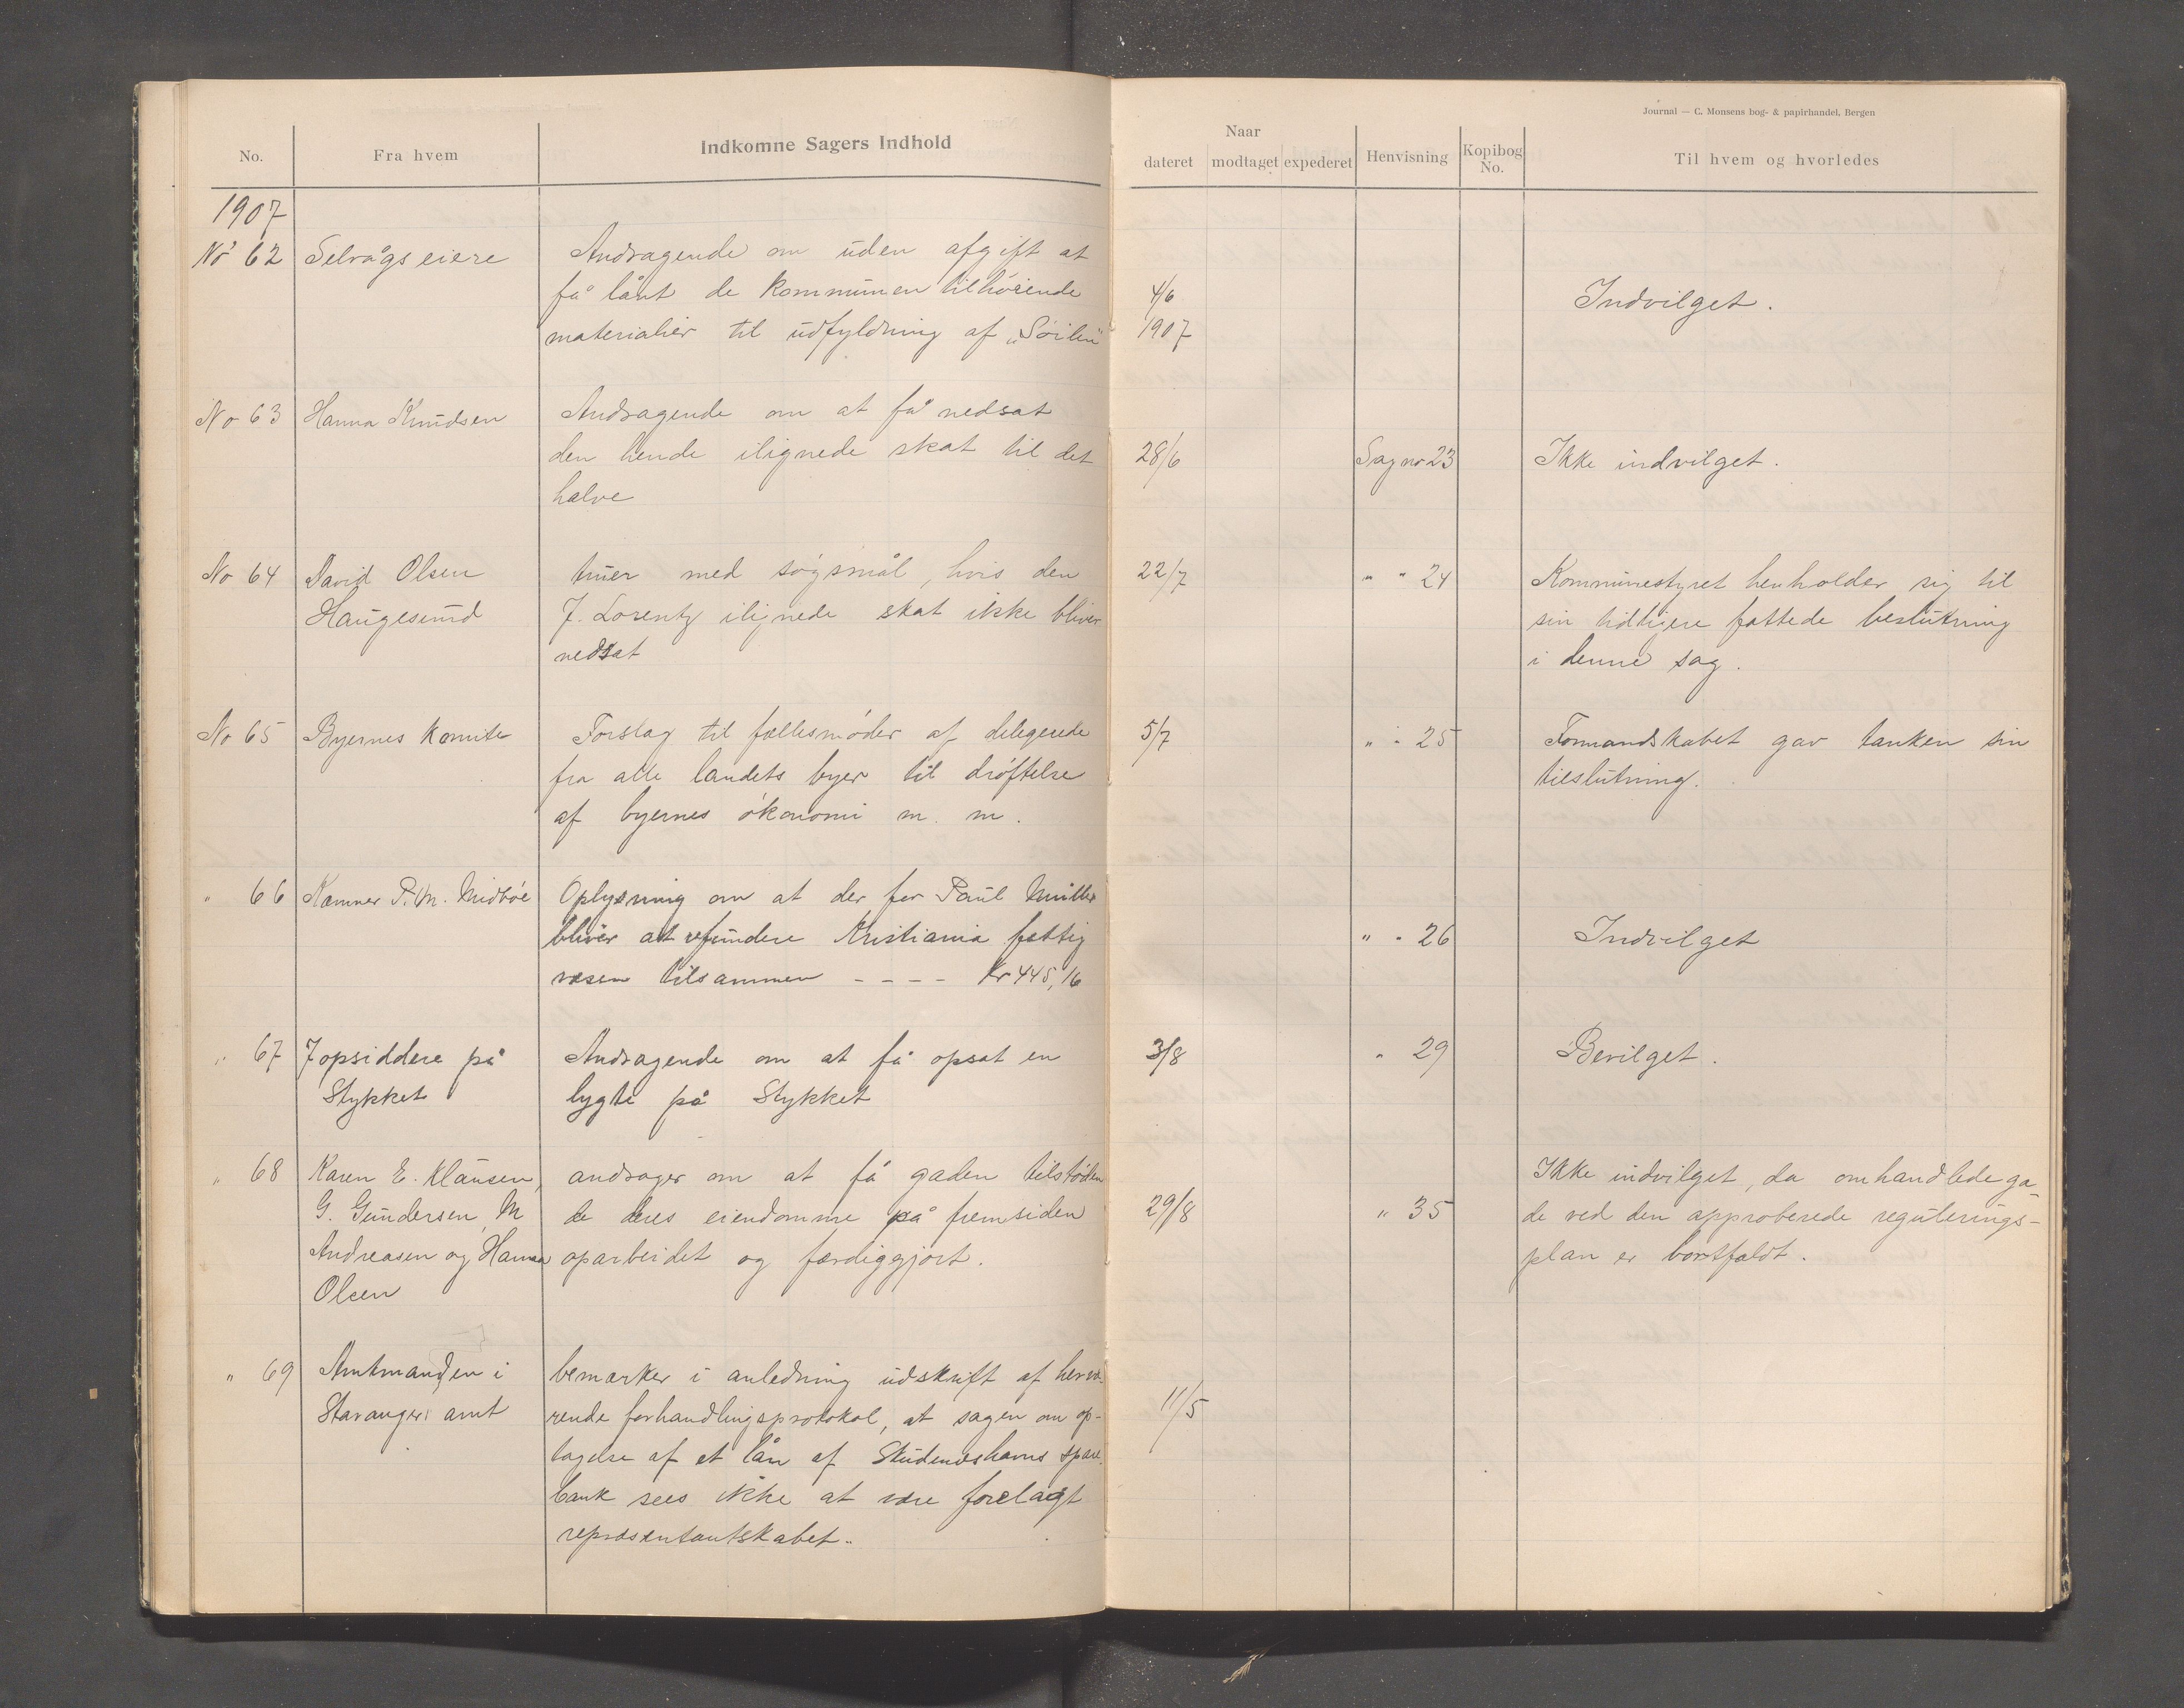 Journal — C. Monsens bog- & papirhandel, Bergen
No. Fra hvem Indkomne Sagers Indhold
Naar
dateret modtaget expederet Henvisning Kopibog No. Til hvem og hvorledes
1907
No 62 Selvågs eiere Andragende om uden afgift at
få lånt de kommunen tilhørende 4/6 Indvilget.
materialier til udfyldning af 1907
No 63 Hanna Knudsen Andragende om at få nedsat
den hende ilignede skat til det 28/6 Sag no 23 Ikke indvilget.
halve
No 64 David Olsen truer med søgsmål, hvis den 22/7 " " 24 Kommunestyret henholder sig til
Haugesund J. Lorentz ilignede skat ikke bliver sin tidligere fattede beslutning
nedsat i denne sag.
No 65 Byernes komite Forslag til fællesmøder af delegerede 5/7 " " 25 Formandskabet gav tanken sin
fra alle landets byer til drøftelse tilslutning.
af byernes økonomi m. m.
" 66 Kæmner P. M. Midbøe Oplysning om at der for Paul Müller
bliver at refundere Kristiania fattig " " 26 Indvilget
væsen tilsammen - - - - Kr 445,16
" 67 7 opsiddere på Andragende om at få opsat en 3/8 " 29 Bevilget.
Stykket lygte på Stykket
" 68 Karen E. Klausen, andrager om at få gaden tilstøden Ikke indvilget, da omhandlede ga-
G. Gundersen, M de deres eiendomme på fremsiden 29/8 " 35 de ved den approberede regulerings-
Andreasen og Hanna oparbeidet og færdiggjort. plan er bortfaldt.
Olsen
" 69 Amtmanden i bemærker i anledning udskrift af hervæ-
Stavanger amt rende forhandlingsprotokol, at sagen om op- 11/5
tagelse af et lån af Skudeneshavns spare-
bank sees ikke at være forelagt
repræsentantskabet.